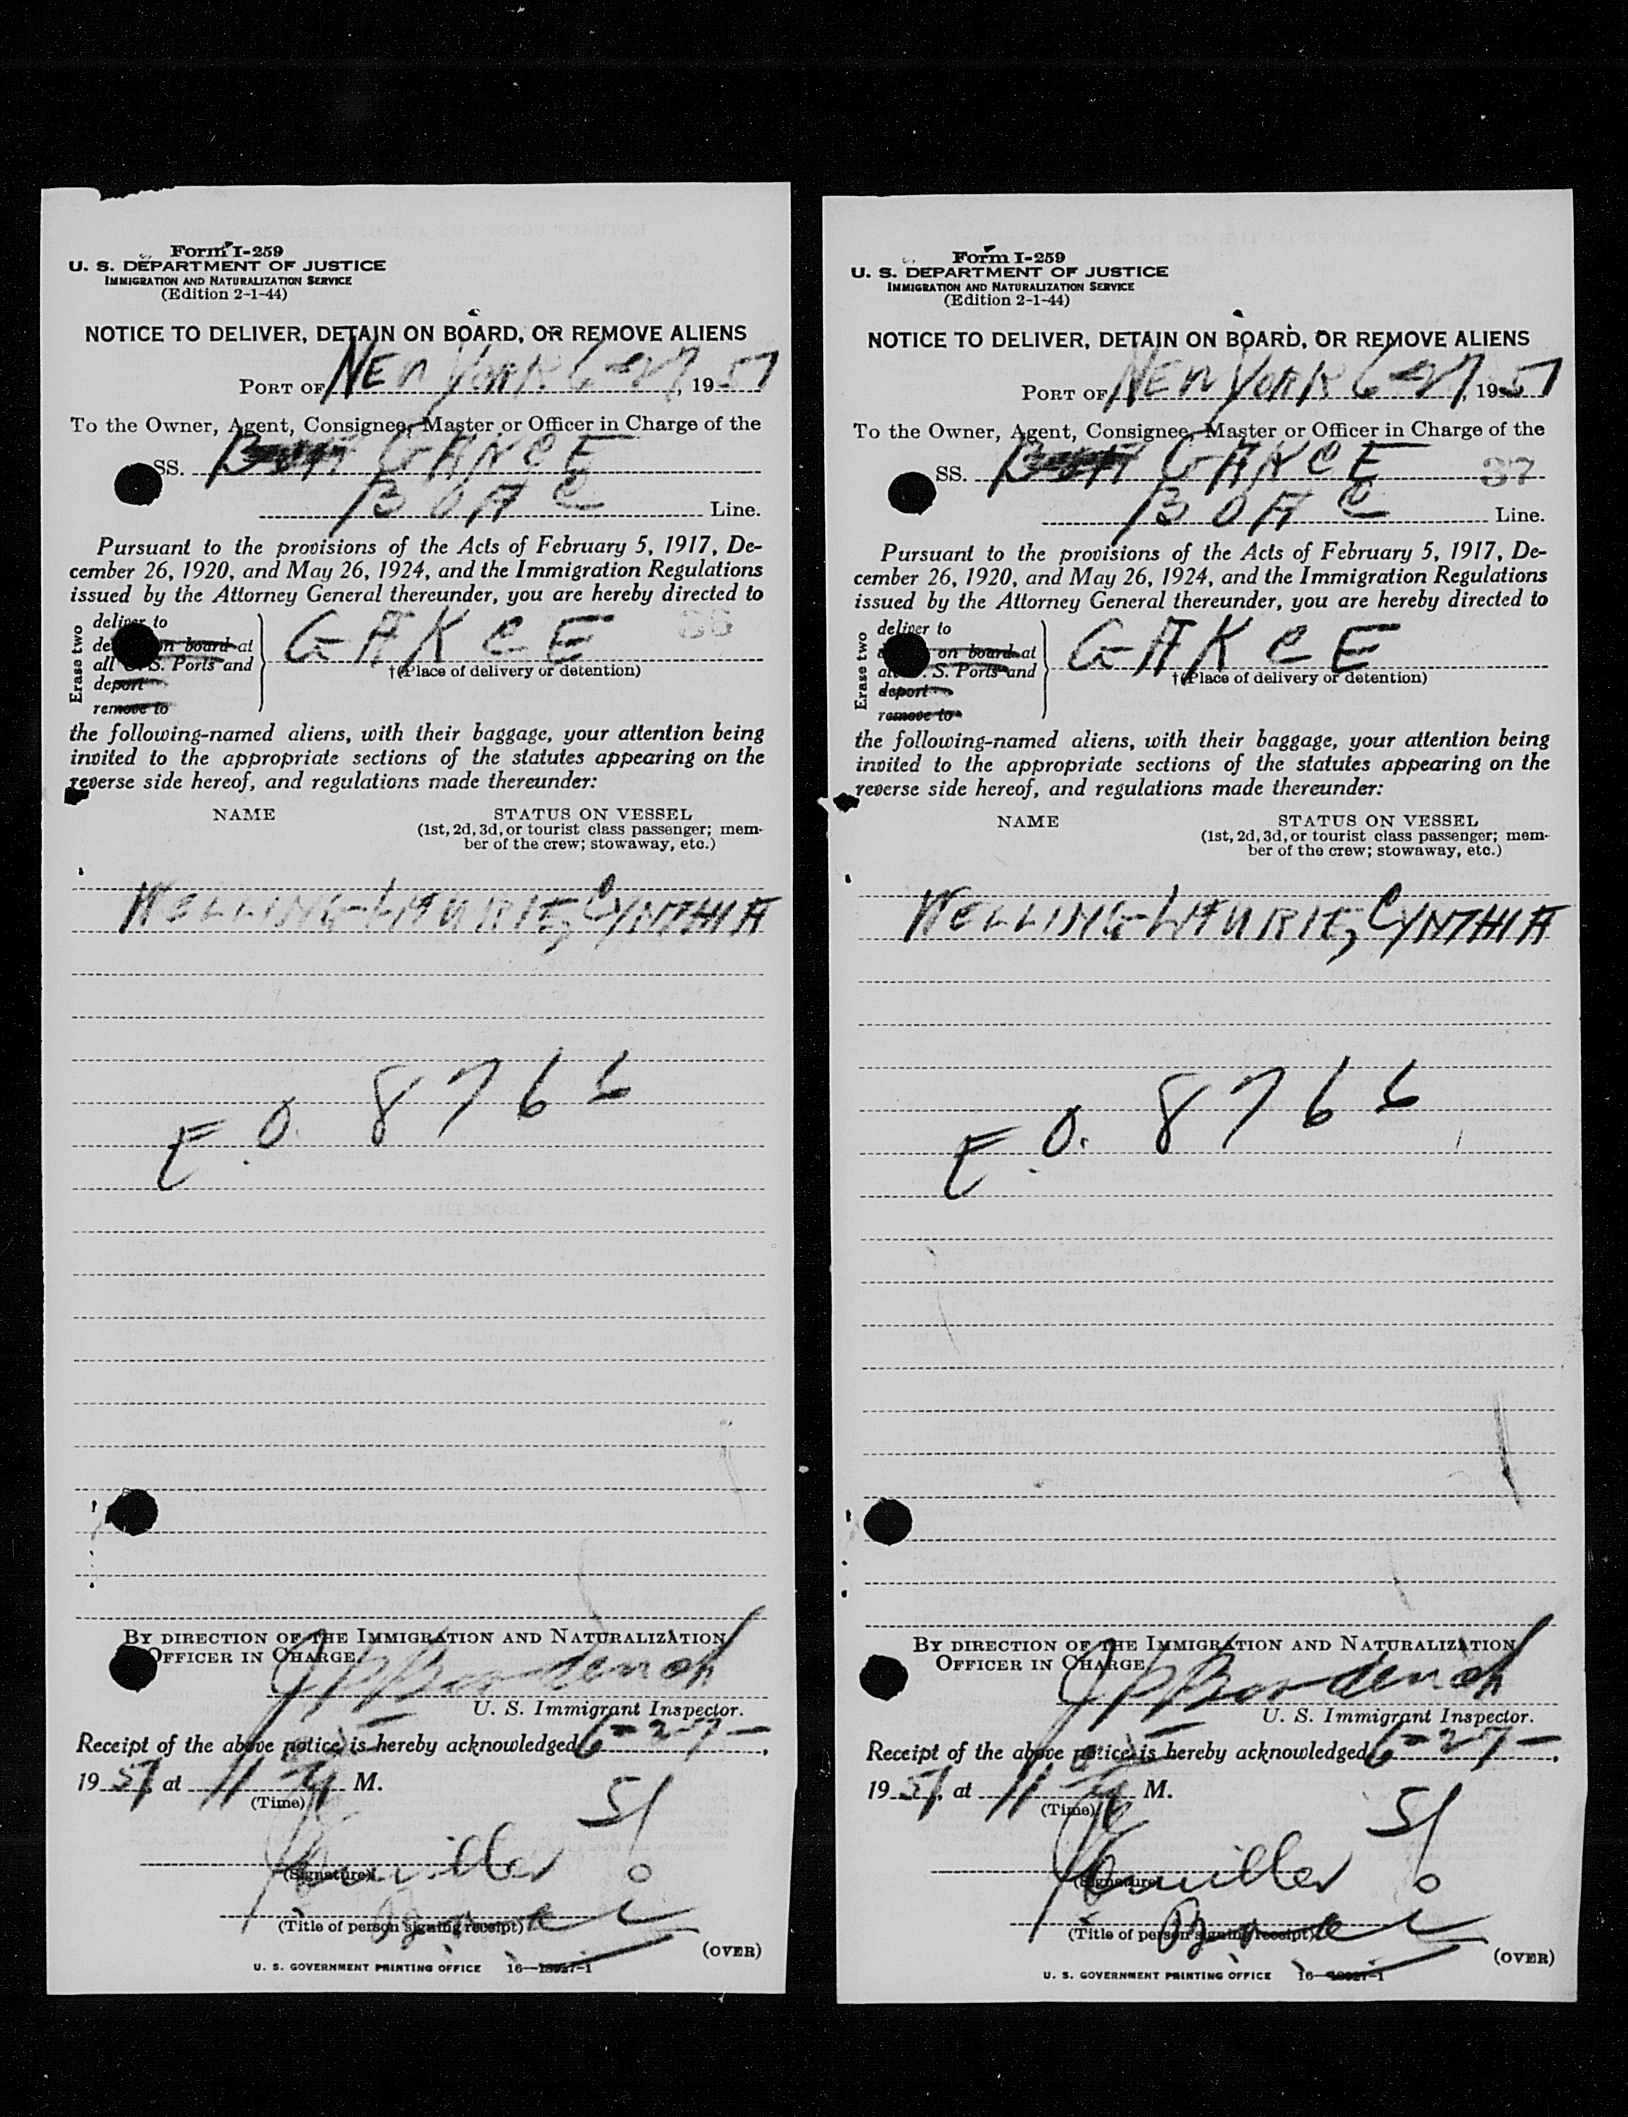 Form I-259
U. S. DEPARTMENT OF JUSTICE
IMMIGRATION AND NATURALIZATION SERVICE
(Edition 2-1-44)
NOTICE TO DELIVER, DETAIN ON BOARD, OR REMOVE ALIENS
PORT OF NEW YORK 6-27, 1951
To the Owner, Agent, Consignee, Master or Officer in Charge of the
SS. GAKCE
BOAC Line.
Pursuant to the provisions of the Acts of February 5, 1917, De-
cember 26, 1920, and May 26, 1924, and the Immigration Regulations
issued by the Attorney General thereunder, you are hereby directed to
Erase two
deliver to
on board at
all U. S. Ports and
deport
remove to
GAKCE 36
†(Place of delivery or detention)
the following-named aliens, with their baggage, your attention being
invited to the appropriate sections of the statutes appearing on the
reverse side hereof, and regulations made thereunder:
NAME STATUS ON VESSEL
(1st, 2d, 3d, or tourist class passenger; mem-
ber of the crew; stowaway, etc.)
WELLING-LAURIE, CYNTHIA
E.O. 8766
BY DIRECTION OF THE IMMIGRATION AND NATURALIZATION
OFFICER IN CHARGE
U. S. Immigrant Inspector.
Receipt of the above notice is hereby acknowledged 6-27-,
1951, at 11 M.
(Time)
(Signature)
(Title of person signing receipt)
(OVER)
U. S. GOVERNMENT PRINTING OFFICE 16-18927-1
Form I-259
U. S. DEPARTMENT OF JUSTICE
IMMIGRATION AND NATURALIZATION SERVICE
(Edition 2-1-44)
NOTICE TO DELIVER, DETAIN ON BOARD, OR REMOVE ALIENS
PORT OF NEW YORK 6-27, 1951
To the Owner, Agent, Consignee, Master or Officer in Charge of the
SS. GAKCE 37
BOAC Line.
Pursuant to the provisions of the Acts of February 5, 1917, De-
cember 26, 1920, and May 26, 1924, and the Immigration Regulations
issued by the Attorney General thereunder, you are hereby directed to
Erase two
deliver to
on board at
all U. S. Ports and
deport
remove to
GAKCE
†(Place of delivery or detention)
the following-named aliens, with their baggage, your attention being
invited to the appropriate sections of the statutes appearing on the
reverse side hereof, and regulations made thereunder:
NAME STATUS ON VESSEL
(1st, 2d, 3d, or tourist class passenger; mem-
ber of the crew; stowaway, etc.)
WELLING-LAURIE, CYNTHIA
E.O. 8766
BY DIRECTION OF THE IMMIGRATION AND NATURALIZATION
OFFICER IN CHARGE
U. S. Immigrant Inspector.
Receipt of the above notice is hereby acknowledged 6-27-,
1951, at 11 M.
(Time)
(Signature)
(Title of person signing receipt)
(OVER)
U. S. GOVERNMENT PRINTING OFFICE 16-18927-1